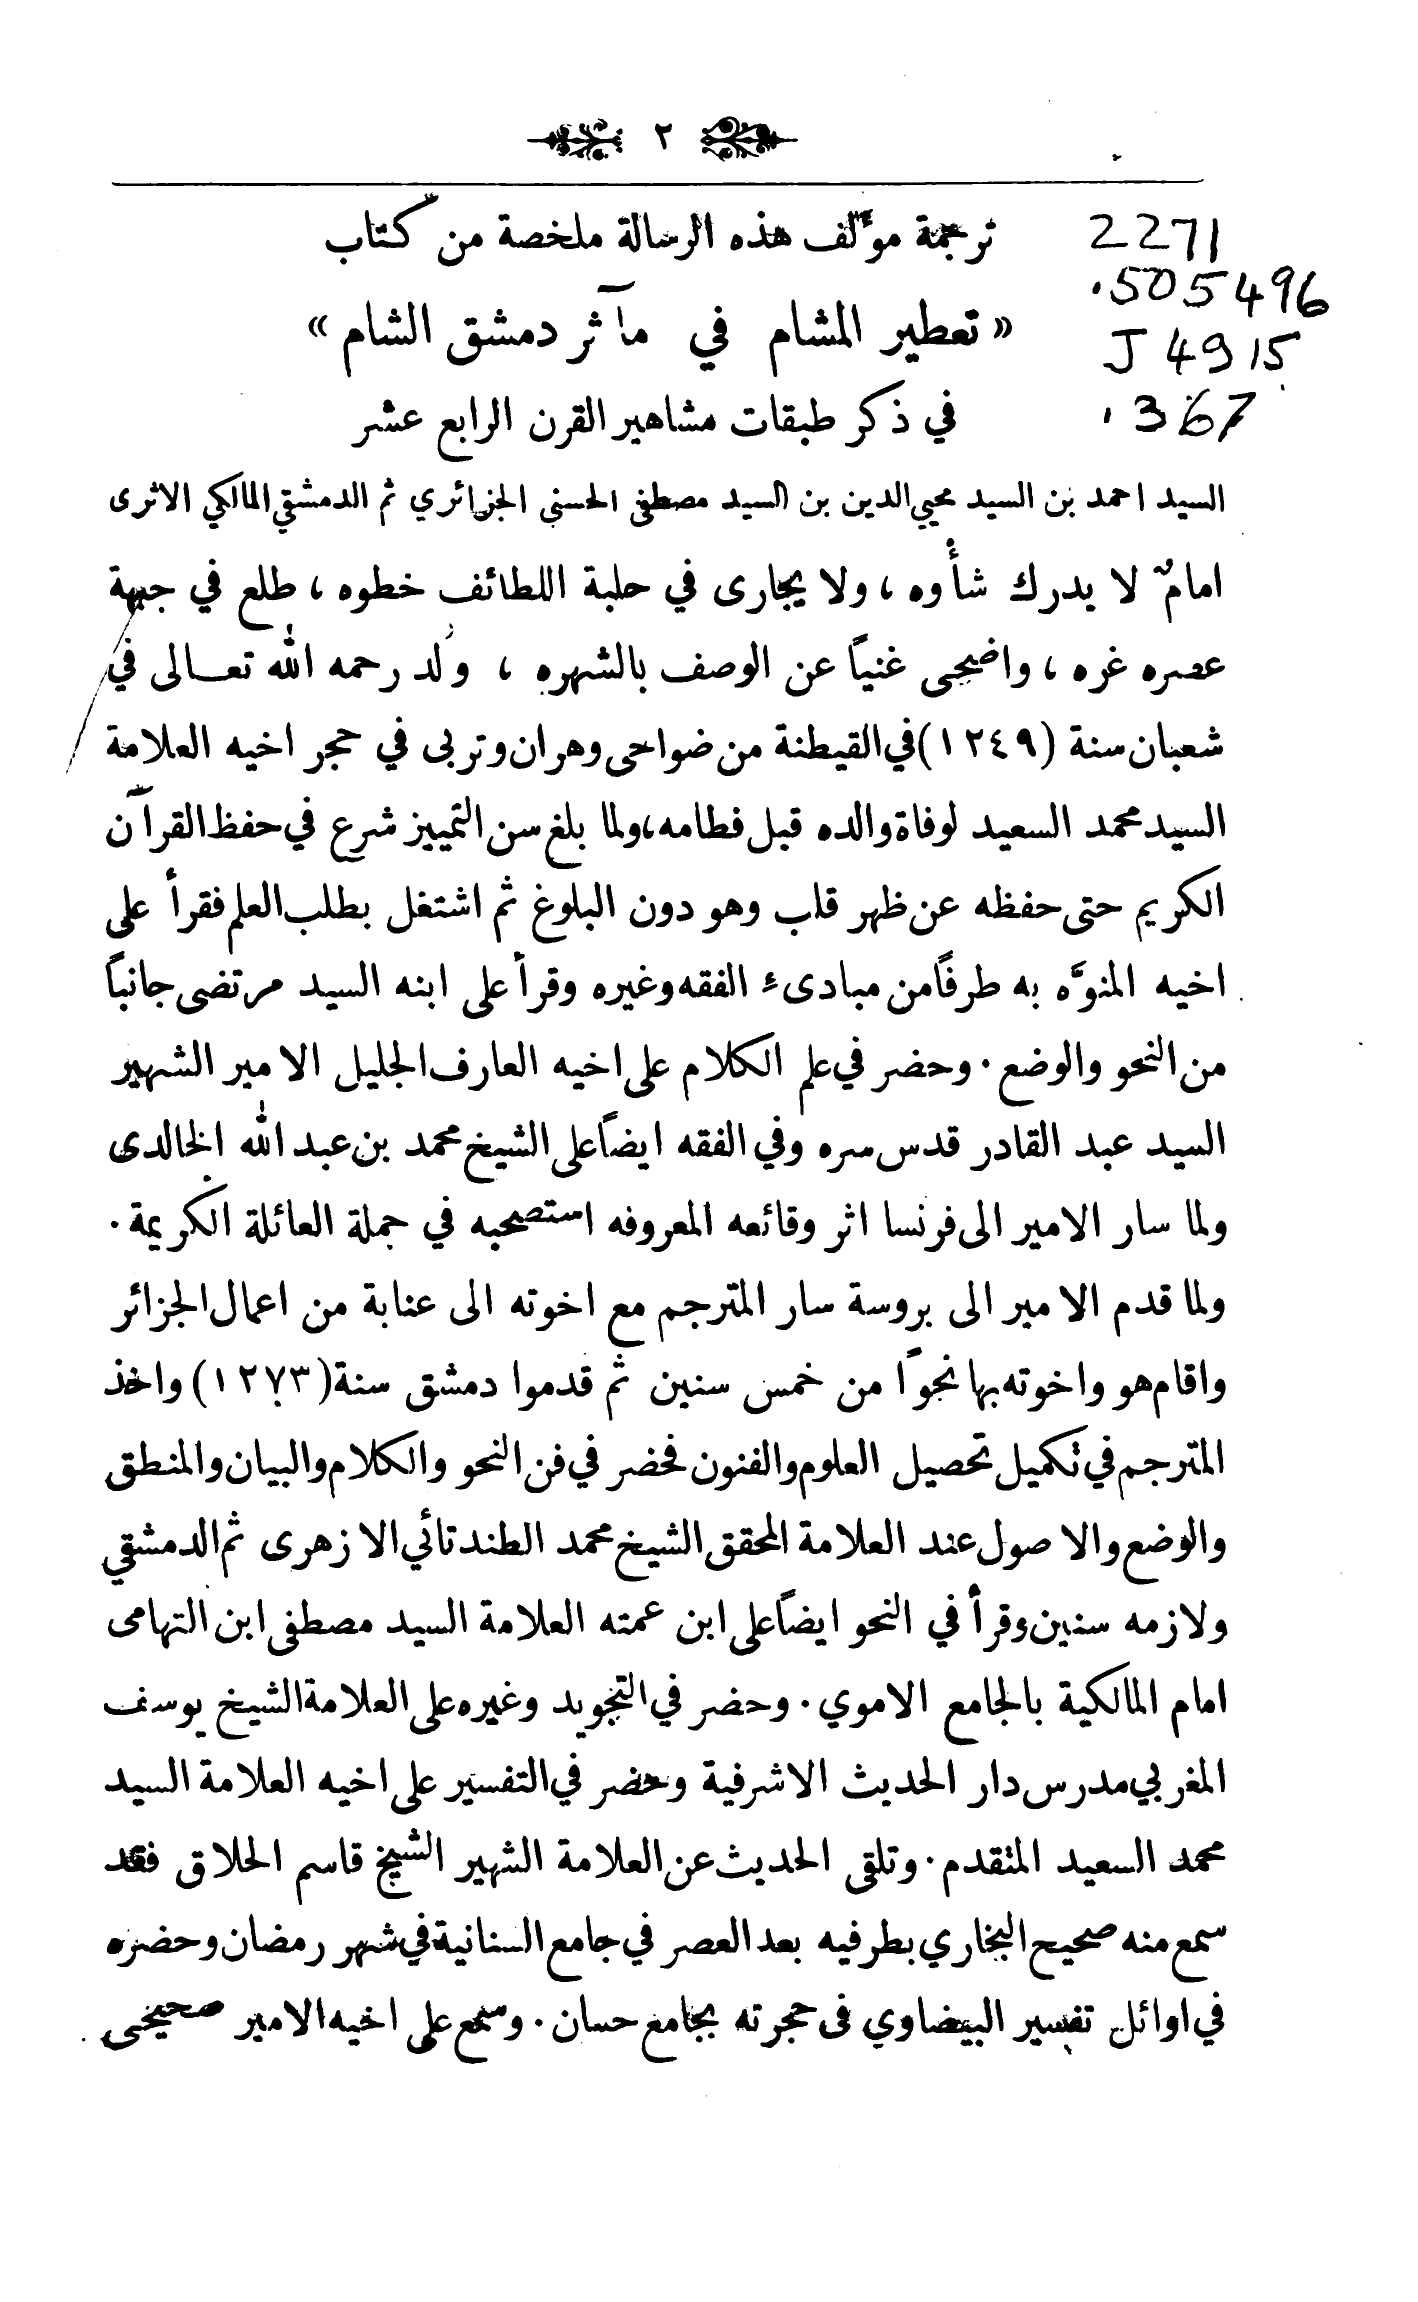 ٢
ترجمة مؤلف هذه الرسالة ملخصة من كتاب
2271
« تعطير المشام في مآثر دمشق الشام »
.505496
J 4915
في ذكر طبقات مشاهير القرن الرابع عشر
.367
السيد احمد بن السيد محيي الدين بن السيد مصطفى الحسنى الجزائري ثم الدمشقي المالكي الاثرى
امامٌ لا يدرك شأوه ، ولا يجارى في حلبة اللطائف خطوه ، طلع في جبهة
عصره غره ، واضحى غنياً عن الوصف بالشهره ، وُلد رحمه الله تعالى في
شعبان سنة (١٢٤٩) في القيطنة من ضواحى وهران وتربى في حجر اخيه العلامة
السيد محمد السعيد لوفاة والده قبل فطامه ، ولما بلغ سن التمييز شرع في حفظ القرآن
الكريم حتى حفظه عن ظهر قلب وهو دون البلوغ ثم اشتغل بطلب العلم فقرأ على
اخيه المنوَّه به طرفًا من مبادىء الفقه وغيره وقرأ على ابنه السيد مرتضى جانباً
من النحو والوضع . وحضر في علم الكلام على اخيه العارف الجليل الامير الشهير
السيد عبد القادر قدس سره وفي الفقه ايضاً على الشيخ محمد بن عبد الله الخالدى
ولما سار الامير الى فرنسا اثر وقائعه المعروفه استصحبه في جملة العائلة الكريمة .
ولما قدم الامير الى بروسة سار المترجم مع اخوته الى عنابة من اعمال الجزائر
واقام هو واخوته بها نحوًا من خمس سنين ثم قدموا دمشق سنة (١٢٧٣) واخذ
المترجم في تكميل تحصيل العلوم والفنون فحضر في فن النحو والكلام والبيان والمنطق
والوضع والاصول عند العلامة المحقق الشيخ محمد الطندتائي الازهرى ثم الدمشقي
ولازمه سنين وقرأ في النحو ايضاً على ابن عمته العلامة السيد مصطفى ابن التهامى
امام المالكية بالجامع الاموي . وحضر في التجويد وغيره على العلامة الشيخ يوسف
المغربي مدرس دار الحديث الاشرفية وحضر في التفسير على اخيه العلامة السيد
محمد السعيد المتقدم . وتلقى الحديث عن العلامة الشهير الشيخ قاسم الحلاق فقد
سمع منه صحيح البخاري بطرفيه بعد العصر في جامع السنانية في شهر رمضان وحضره
في اوائل تفسير البيضاوي فى حجرته بجامع حسان . وسمع على اخيه الامير صحيحى